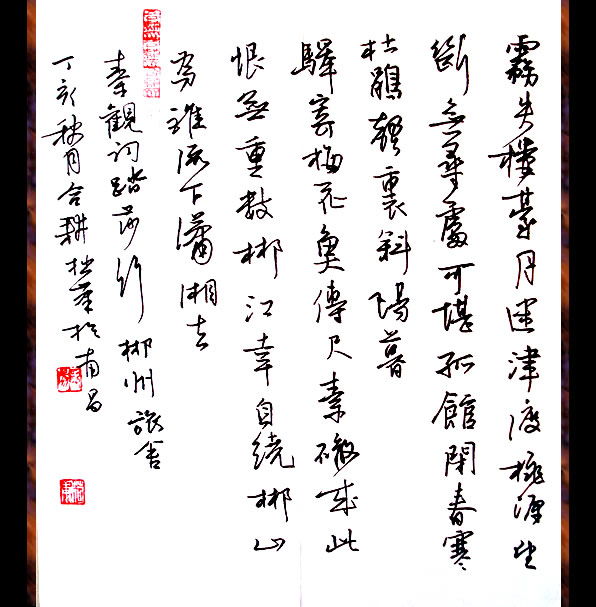 霧失樓臺月迷津渡桃源望
斷無尋處可堪孤館閉春寒
杜鵑聲裏斜陽暮
驛寄梅花魚傳尺素砌成此
恨無重數郴江幸自繞郴山
為誰流下瀟湘去
秦觀詞踏莎行 郴州旅舍
丁亥秋月合耕拙筆於南昌